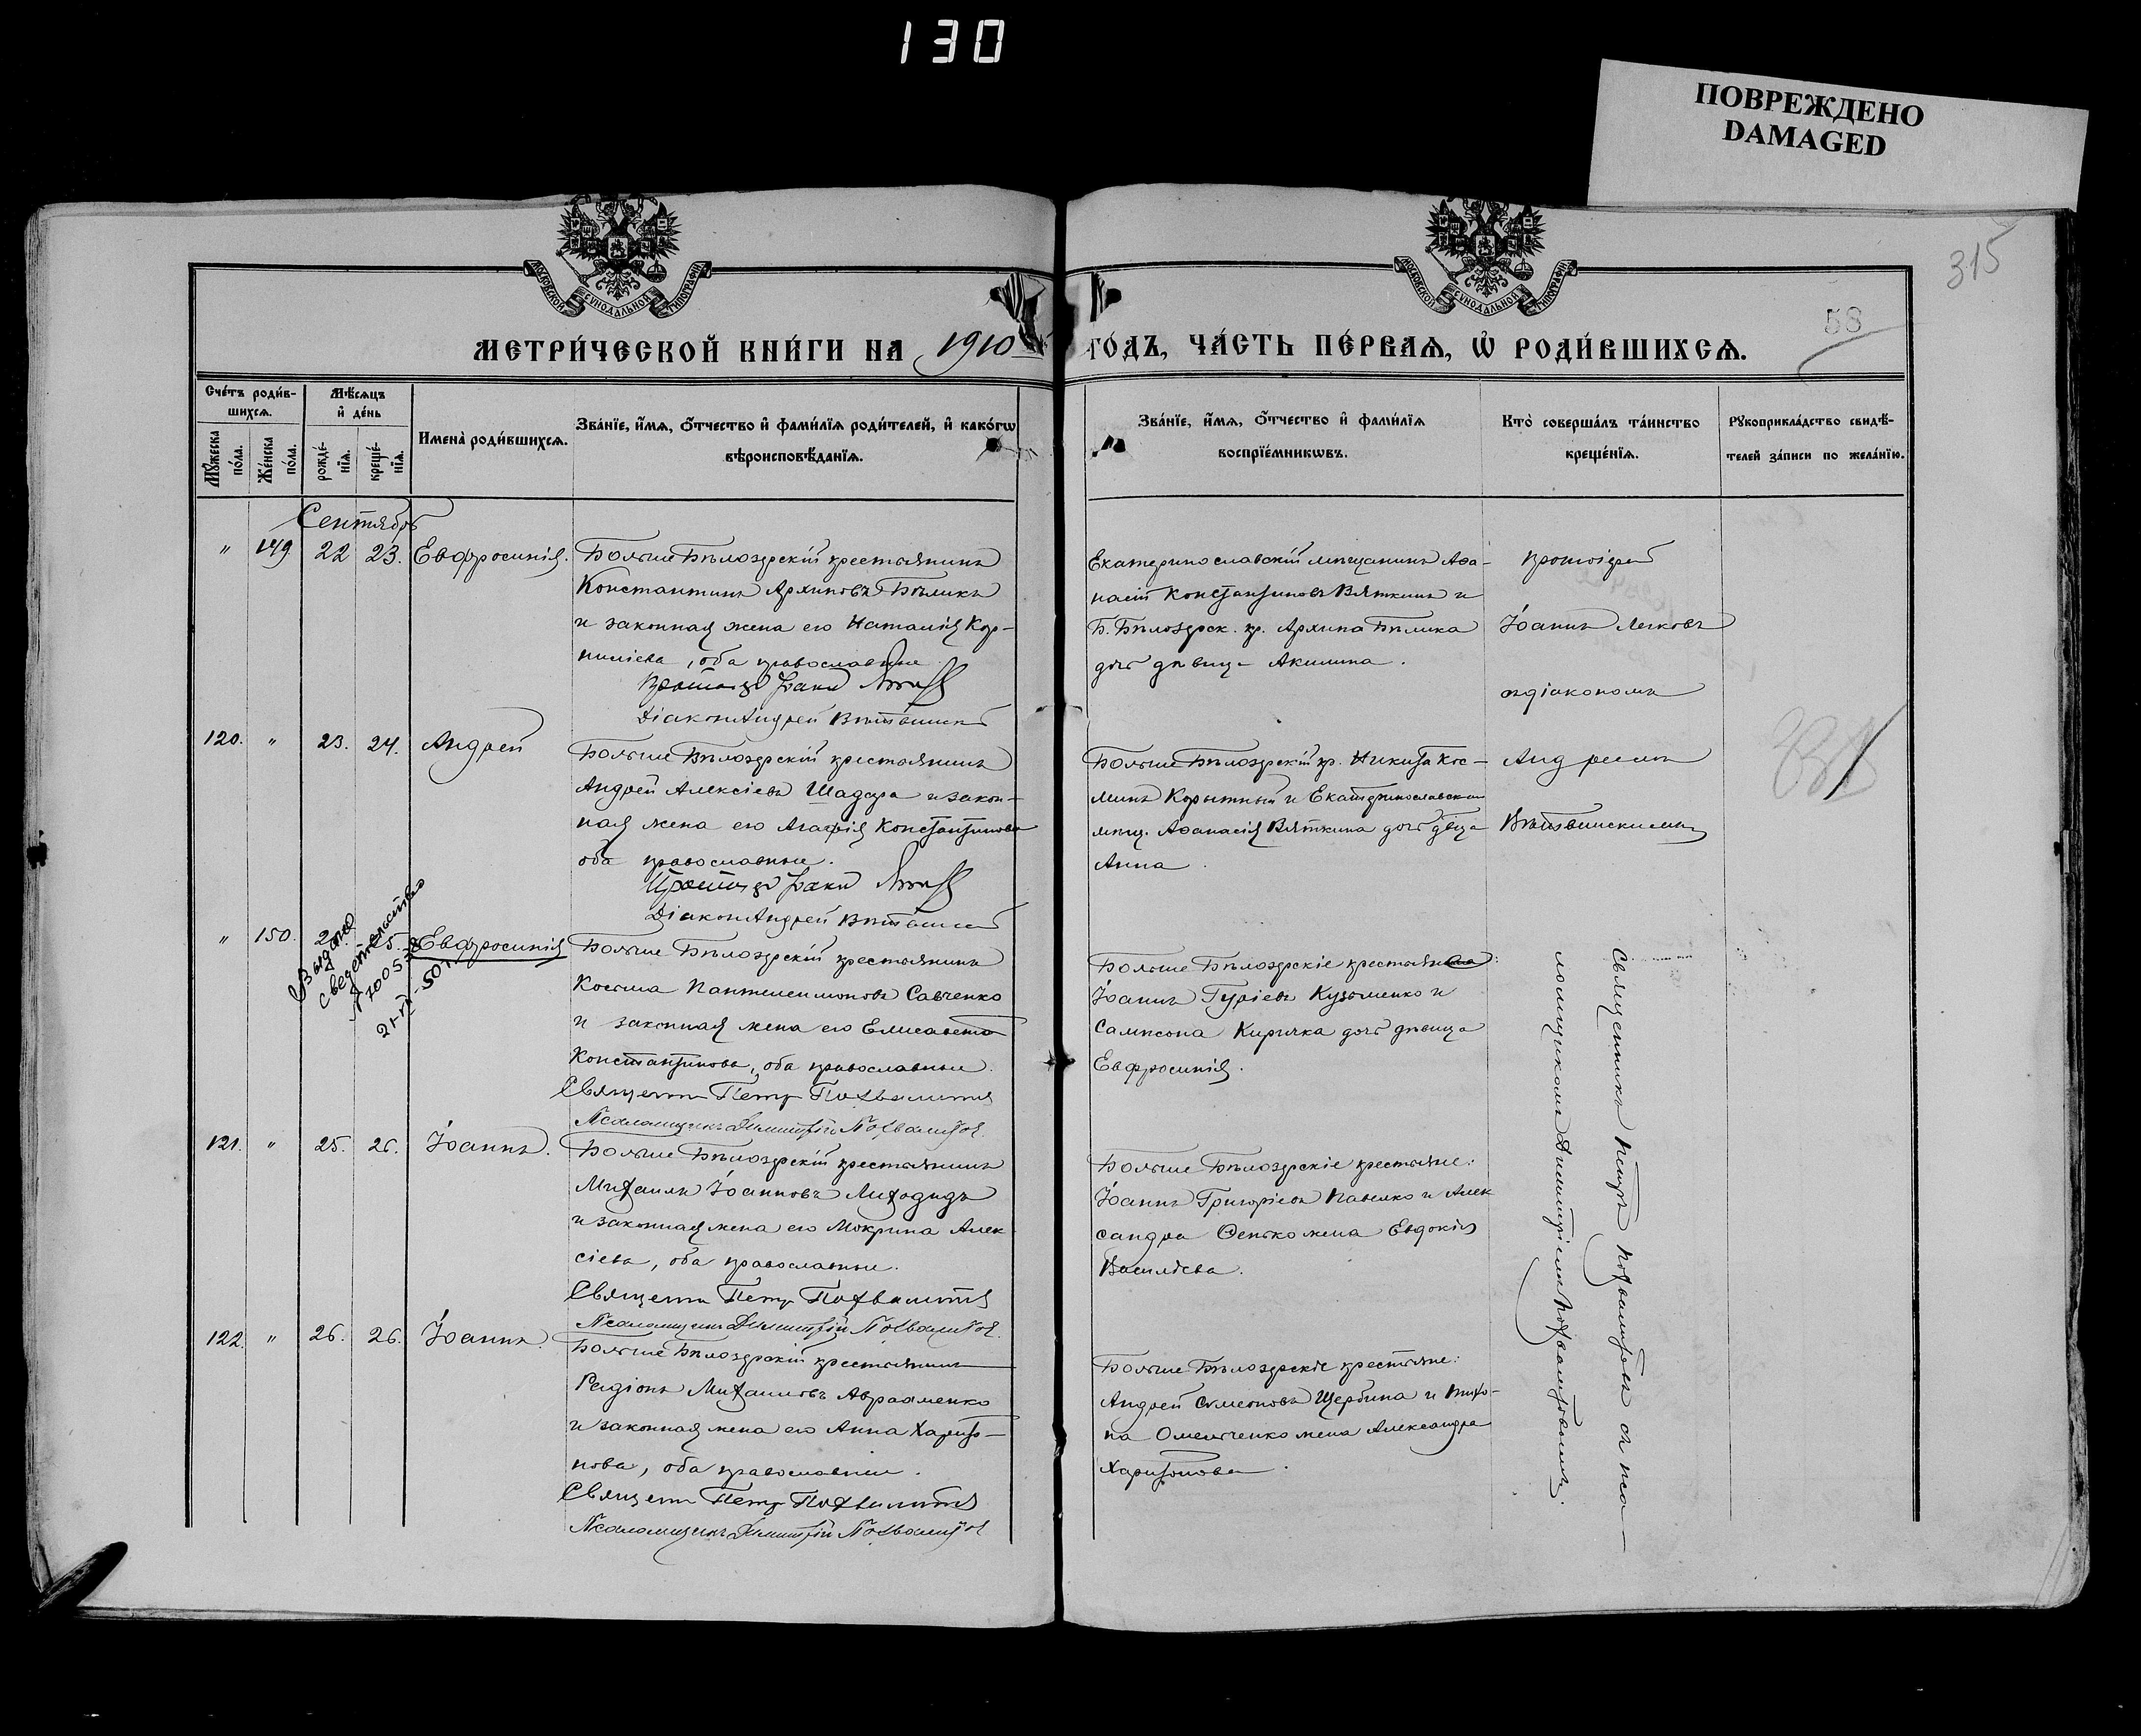 130
ПОВРЕЖДЕНО
DAMAGED
315
58
МОСКОВСКОЙ СѴНОДАЛЬНОЙ ТИПОГРАФІИ
МОСКОВСКОЙ СѴНОДАЛЬНОЙ ТИПОГРАФІИ
МЕТРИ́ЧЕСКОЙ КНИ́ГИ НА 1910 ГО́ДЪ, ЧА́СТЬ ПЕ́РВАѦ, Ѡ РОДИ́ВШИХСѦ.
Сче́тъ роди́в-
шихсѧ.
Мꙋ́жеска по́ла.
Же́нска по́ла.
Мѣ́сѧцъ
и҆ де́нь
рожде́-
нїѧ.
креще́-
нїѧ.
И҆мена̀ роди́вшихсѧ.
Зва́нїе, и҆́мѧ, ѻ҆́тчество и҆ фами́лїѧ роди́телей, и҆ како́гѡ
вѣроисповѣ́данїѧ.
Зва́нїе, и҆́мѧ, ѻ҆́тчество и҆ фами́лїѧ
воспрїе́мникѡвъ.
Кто̀ соверша́лъ та́инство
креще́нїѧ.
Рꙋкоприкла́дство свидѣ́-
телей за́писи по жела́нїю.
Сентябрь
" 149. 22 23. Евфросинія.
Больше Бѣлозерскій крестьянинъ
Константинъ Архиповъ Бѣликъ
и законная жена его Наталія Кор-
нилiева, оба православные.
Діаконъ Андрей Витвинскій
Екатеринославскій мѣщанинъ Афа-
насій Константиновъ Вяткинъ и
Б. Бѣлозерск. кр. Архипа Бѣлика
дочь дѣвица Акилина.
протоіерей
Іоаннъ
съ діакономъ
120. " 23. 24. Андрей
Больше Бѣлозерскій крестьянинъ
Андрей Алексіевъ Шадура и закон-
ная жена его Агафія Константинова
оба православные.
Діаконъ Андрей Витвинскій
Больше Бѣлозерскій кр. Никита Кос-
минъ Корытный и Екатеринославскаго
мѣщ. Афанасія Вяткина дочь двица
Анна.
Андреемъ
Витвинскимъ
" 150. 25. Евфросинія
Выдано
свидетельство
21-IV-50 г.
Больше Бѣлозерскій крестьянинъ
Косьма Пантелеимоновъ Савченко
и законная жена его Елисавета
Константинова, оба православные.
Священникъ Петръ Похвалитовъ
Псаломщикъ Димитрій Похвалитовъ
Больше Бѣлозерскіе крестьяне:
Іоаннъ Гуріевъ Кузьменко и
Сампсона Киричка дочь дѣвица
Евфросинія.
Священникъ Петръ Похвалитовъ съ пса-
ломщикомъ Димитріемъ Похвалитовымъ.
121. " 25. 26. Іоаннъ.
Больше Бѣлозерскій крестьянинъ
Михаилъ Іоанновъ Лиходидъ
и законная жена его Мокрина Алек-
сіева, оба православные.
Священникъ Петръ Похвалитовъ
Псаломщикъ Димитрій Похвалитовъ.
Больше Бѣлозерскіе крестьяне:
Іоаннъ Григоріевъ Павенко и Алек
сандра Сенько жена Евдокія
Васильева.
122. " 26. 26. Іоаннъ.
Больше Бѣлозерскій крестьянинъ
Родіонъ Михаиловъ Авраменко
и законная жена его Анна Харито-
нова, оба православные.
Священникъ Петръ Похвалитовъ
Псаломщикъ Димитрій Похвалитовъ
Больше Бѣлозерскіе крестьяне:
Андрей Симеоновъ Щербина и Тихо-
на Омельченко жена Александра
Харитонова.